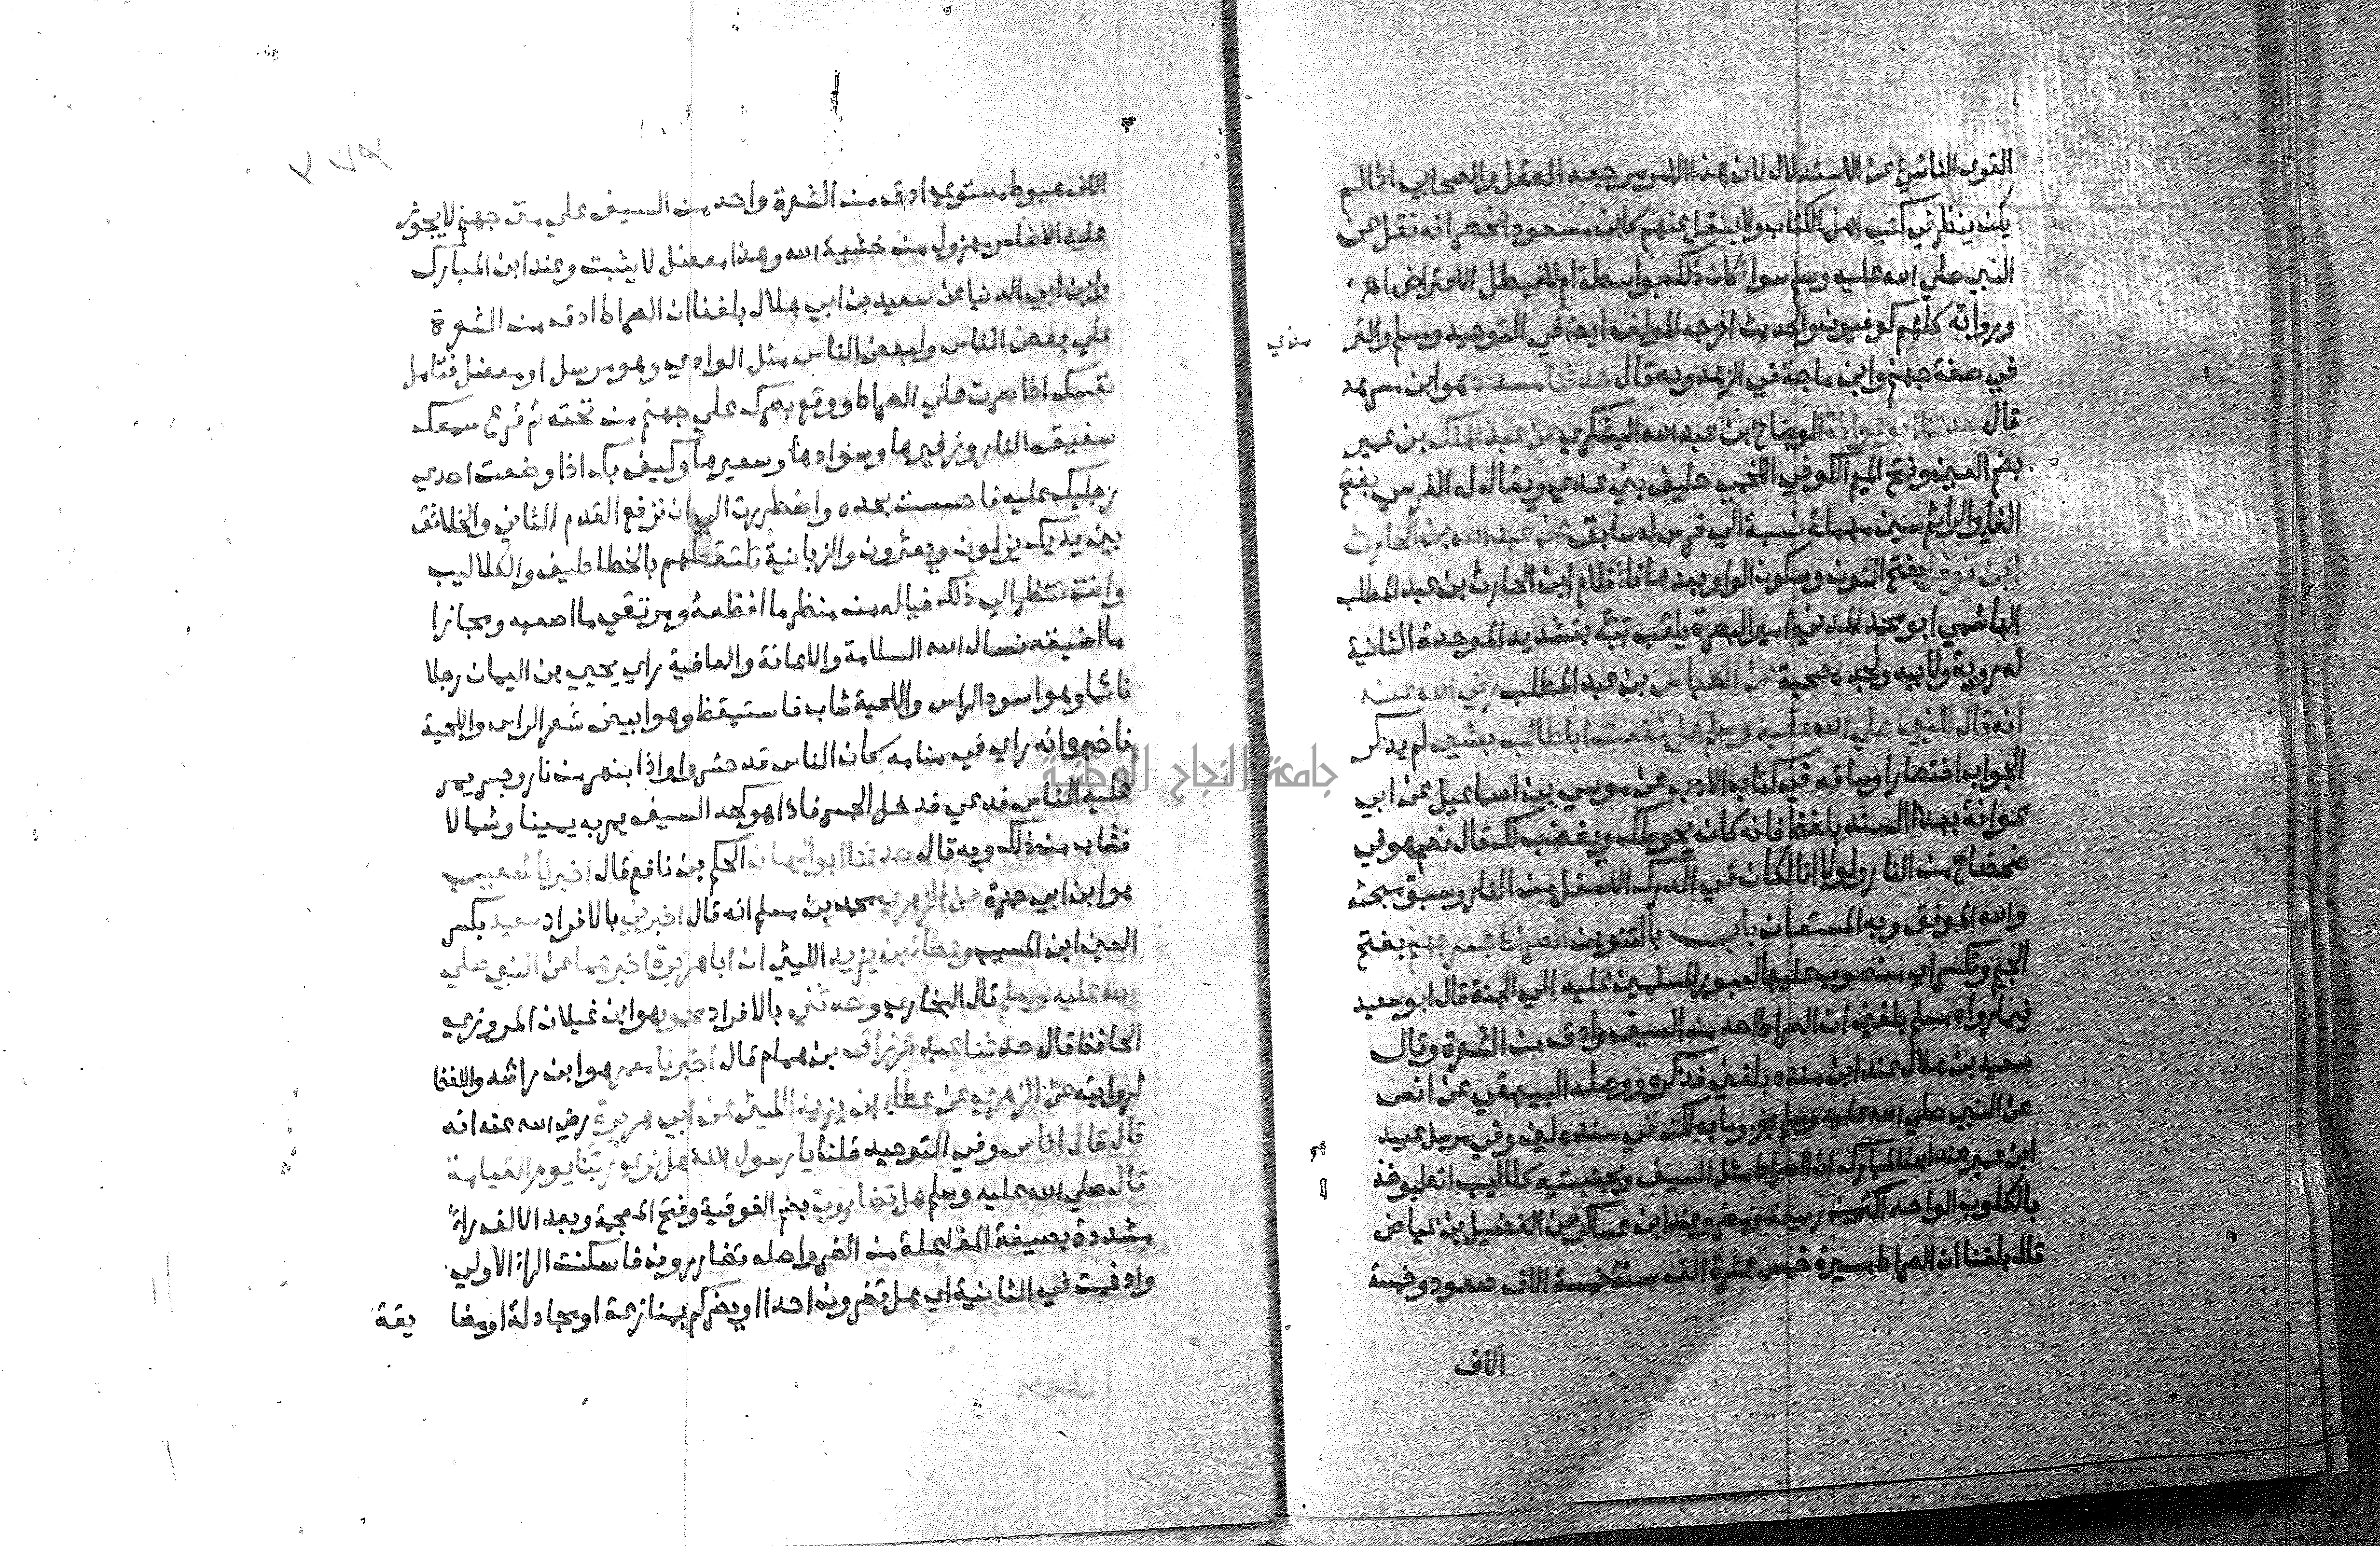 القوي الناشئ عن الاستدلال لان هذا الامر مرجعه العقل والصحابي اذا لم
يكن ينظر في كتب اهل الكتاب ولا ينقل عنهم كابن مسعود انحصر انه نقل عن
النبي صلي الله عليه وسلم سواء كان ذلك بواسطة ام لا فبطل الاعتراض اهـ
ورواته كلهم كوفيون والحديث اخرجه المولف ايضا في التوحيد ومسلم والتر
مذي
في صفة جهنم وابن ماجة في الزهد وبه قال حدثنا مسدد هو ابن مسرهد
قال حدثنا ابو عوانة الوضاح بن عبد الله اليشكري عن عبد الملك بن عمير
بضم العين وفتح الميم الكوفي اللخمي حليف بني عدي ويقال له الفرسي بفتح
الفاء والراء ثم سين مهملة نسبة الي فرس له سابق عن عبد الله بن الحارث
ابن نوفل بفتح النون وسكون الواو بعدها فاء فلام ابن الحارث بن عبد المطلب
الهاشمي ابو محمد المدني امير البصرة يلقب ببّه بتشديد الموحدة الثانية
له روية ولابيه ولجده صحبة عن العباس بن عبد المطلب رضي الله عنه
انه قال للنبي صلي الله عليه وسلم هل نفعت ابا طالب بشي لم يذكر
الجواب اختصارا وساقه في كتاب الادب عن موسي بن اسماعيل عن ابي
عوانة بهذا السند بلفظ فانه كان يحوطك ويغضب لك قال نعم هو في
ضحضاح من النار ولولا انا لكان في الدرك الاسفل من النار وسبق مبحثه
والله الموفق وبه المستعان باب بالتنوين الصراط جسر جهنم بفتح
الجيم وتكسر اي منصوب عليها لعبور المسلمين عليه الي الجنة قال ابو سعيد
فيما رواه مسلم بلغني ان الصراط احد من السيف وادق من الشعرة وقال
سعيد بن هلال عند ابن منده بلغني فذكره ووصله البيهقي عن انس
عن النبي صلي الله عليه وسلم مجزوما به لكن في سنده لين وفي مرسل عبيد
ابن عمير عند ابن المبارك ان الصراط مثل السيف وبجنبتيه كلاليب انه ليوخذ
بالكلوب الواحد اكثر من ربيعة ومضر وعند ابن عساكر عن الفضيل بن عياض
قال بلغنا ان الصراط مسيرة خمس عشرة الف سنة خمسة الاف صعود وخمسة
الاف
الاف هبوط مستوي ادق من الشعرة واحد من السيف علي متن جهنم لا يجوز
عليه الا ضامر مهزول من خشية الله وهذا معضل لا يثبت وعند ابن المبارك
وابن ابي الدنيا عن سعيد بن ابي هلال بلغنا ان الصراط ادق من الشعرة
علي بعض الناس ولبعض الناس مثل الوادي وهو مرسل او معضل فتامل
نفسك اذا صرت علي الصراط ووقع بصرك علي جهنم من تحته ثم قرع سمعك
شهيق النار وزفيرها وسوادها وسعيرها وكيف بك اذا وضعت احدي
رجليك عليه فاحسست بحده واضطررت الي ان ترفع القدم الثاني والخلائق
بين يديك يزلون ويعثرون والزبانية تلتقطهم بالخطاطيف والكلاليب
وانت تنظر الي ذلك فياله من منظر ما افظعه ومرتقي ما اصعبه ومجازا
ما اضيقه نسال الله السلامة والاعانة والعافية راي يحيي بن اليمان رجلا
نائما وهو اسود الراس واللحية شاب فاستيقظ وهو ابيض شعر الراس واللحية
فاخبره انه راي في منامه كان الناس قد حشروا واذا بنهر من نار وجسر يمر
عليه الناس فدعي فدخل الجسر فاذا هو كحد السيف يمر به يمينا وشمالا
فشاب من ذلك وبه قال حدثنا ابو اليمان الحكم بن نافع قال اخبرنا شعيب
هو ابن ابي حمزة عن الزهري محمد بن مسلم انه قال اخبرني بالافراد سعيد بكسر
العين ابن المسيب وعطاء بن يزيد الليثي ان ابا هريرة اخبرهما عن النبي صلي
الله عليه وسلم قال البخاري وحدثني بالافراد محمود هو ابن غيلان المروزي
الحافظ قال حدثنا عبد الرزاق بن همام قال اخبرنا معمر هو ابن راشد واللفظ
لروايته عن الزهري عن عطاء بن يزيد الليثي عن ابي هريرة رضي الله عنه انه
قال قال اناس وفي التوحيد قلنا يا رسول الله هل نري ربنا يوم القيامة
قال صلي الله عليه وسلم هل تضارون بضم الفوقية وفتح المعجمة وبعد الالف راء
مشددة بصيغة المفاعلة من الضر واصله تضاررون فاسكنت الراء الاولي
وادغمت في الثانية اي هل تضرون احدا او يضركم بمنازعة او مجادلة او مضا يقة
جامعة النجاح الوطنية